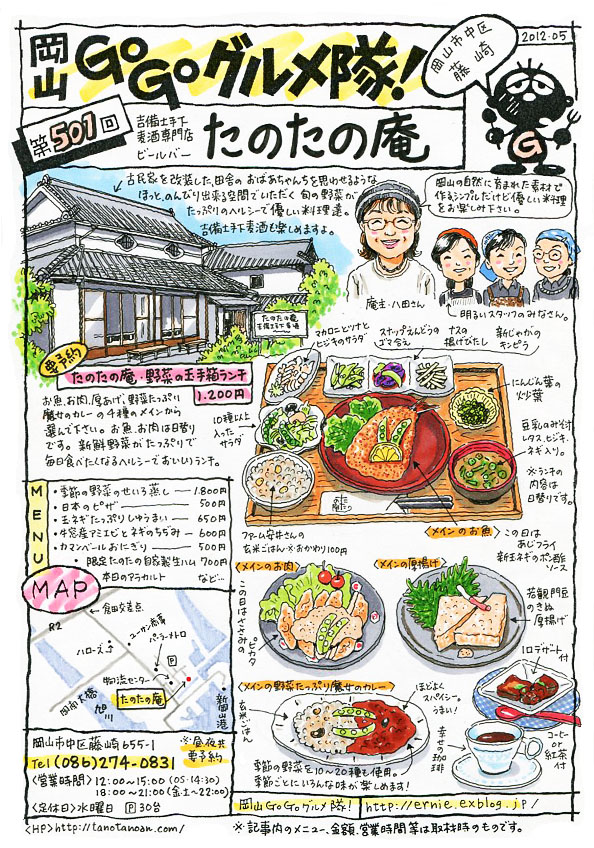 岡山 GoGoグルメ隊!
岡山市中区
藤崎
2012.05
第501回
吉備土手下
麦酒専門店
ビールバー
たのたの庵
古民家を改装した、田舎のおばあちゃんちを思わせるような
ほっと、のんびり出来る空間でいただく旬の野菜が
たっぷりのヘルシーで優しい料理達。
吉備土手下麦酒も楽しめますよ。
岡山の自然に育まれた素材で
作るシンプルだけど優しい料理
をお楽しみ下さい。
G
たのたの庵
吉備土手下麦酒
庵主・八田さん
明るいスタッフのみなさん。
要予約
たのたの庵・野菜の玉手箱ランチ
1.200円
お魚、お肉、厚あげ、野菜たっぷり
魔女のカレーの4種のメインから
選んで下さい。お魚、お肉は日替り
です。新鮮野菜がたっぷりで
毎日食べたくなるヘルシーでおいしいランチ。
マカロニとツナと
ヒジキのサラダ
スナップえんどうの
ゴマ合え
ナスの
揚げびたし
新じゃがの
キンピラ
10種以上
入った
サラダ
にんじん葉の
炒葉
豆乳のみそ汁
レタス、ヒジキ、
ネギ入り。
※ランチの
内容は
日替りです。
ファーム安井さんの
玄米ごはん※おかわり100円
メインのお魚
この日は
あじフライ
新玉ネギのポン酢
ソース
MENU
・季節の野菜のせいろ蒸し — 1.800円
・日本のピザ — 500円
・玉ネギたっぷりしゅうまい — 650円
・牛窓産アミエビとネギのちぢみ — 600円
・カマンベールおにぎり — 500円
・限定たのたの自家製生ハム 700円
本日のアラカルト など…
メインのお肉
この日はささみの
ピカタ
メインの厚揚げ
若観門豆
のきぬ
厚揚げ
1口デザート
付
MAP
R2
倉田交差点
ハローズ
ユーサン商事
パーラーメトロ
P
物流センター
たのたの庵
岡南大橋
旭川
新岡山港
メインの野菜たっぷり魔女のカレー
玄米ごはん
ほどよく
スパイシー
うまい!
季節の野菜を10〜20種も使用。
季節ごとにいろんな味が楽しめます!
幸せの珈琲
コーヒー
or
紅茶
付
岡山市中区藤崎655-1
※昼夜共
要予約
Tel (086)274-0831
<営業時間>12:00〜15:00(OS・14:30)
18:00〜21:00(金土〜22:00)
<定休日>水曜日 P30台
<HP>http://tanotanoan.com/
岡山GoGoグルメ隊! http://ernie.exblog.jp/
※記事内のメニュー、金額、営業時間等は取材時のものです。